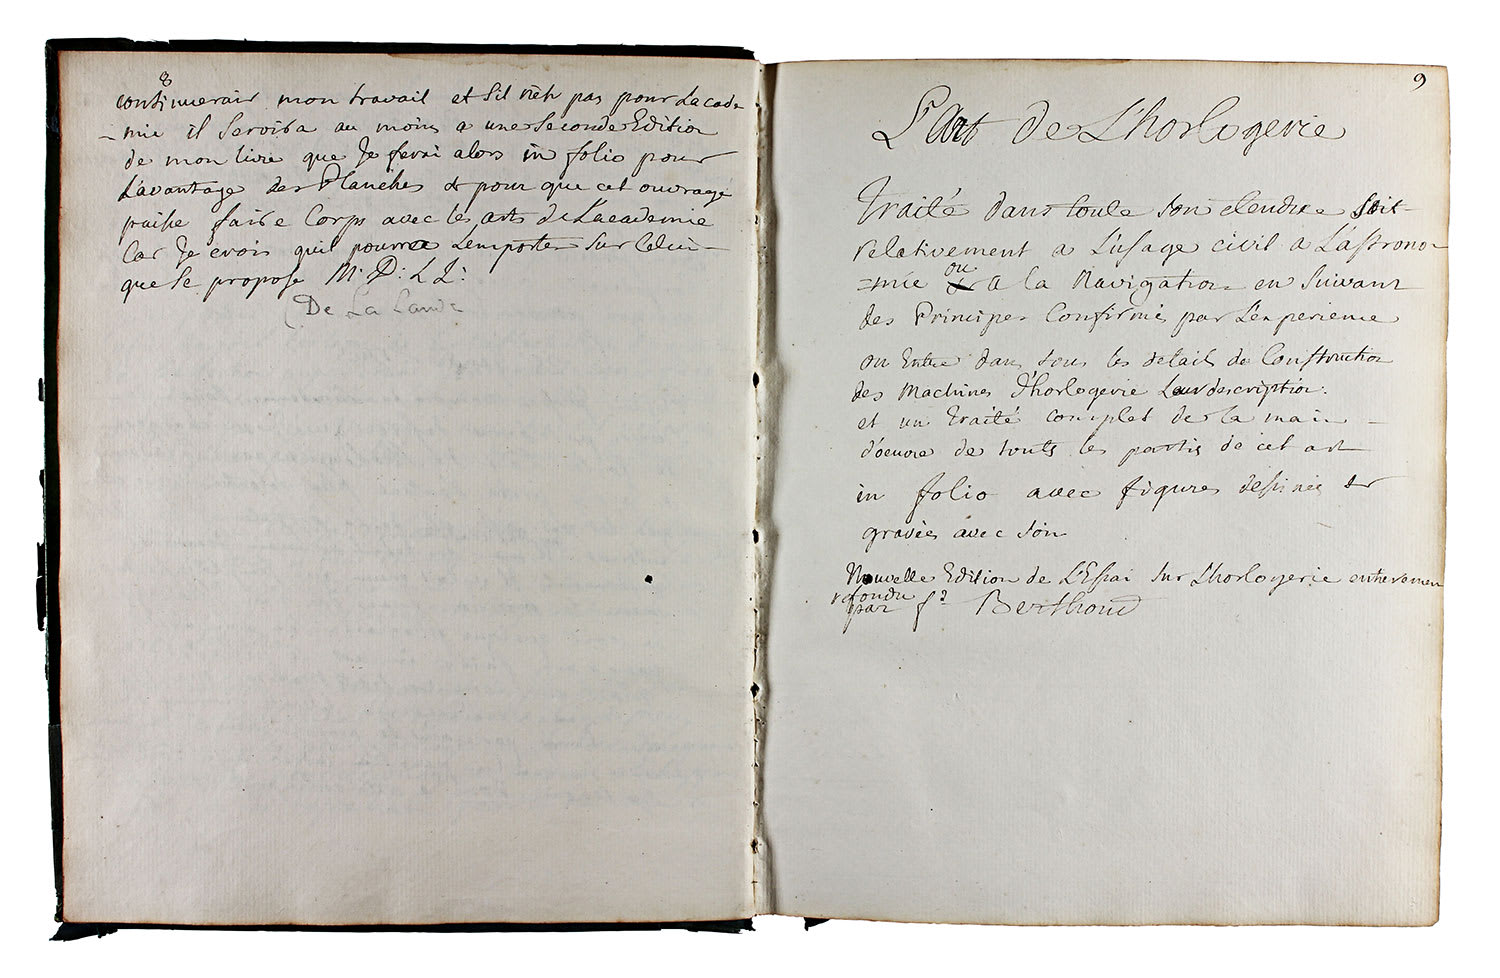 8
continuerair mon travail et s'il n'est pas pour Lacade
-mie il Servira au moins a une Seconde Edition
de mon livre que Je ferai alors in folio pour
L'avantage des Planches & pour que cet ouvrage
puisse faire Corps avec les arts de L'academie
Car Je crois qu'il pourra L'emporter Sur Celui
que Se propose M. D: L L:
(De La Lande
9
L'Art de L'horlogerie
Traité dans toute Son etendue Soit
relativement a L'usage civil a L'astrono-
=mie ou a la Navigation en Suivant
des Principes Confirmés par L'experience
on Entre dans tous les details de Construction
des Machines d'horlogerie Leur description.
et un traité complet de la main
d'oeuvre de touts les partis de cet art
in folio avec figures dessinées &
gravées avec Soin
Nouvelle Edition de L'Essai Sur L'horlogerie entieremen
refondu
par fd Berthoud